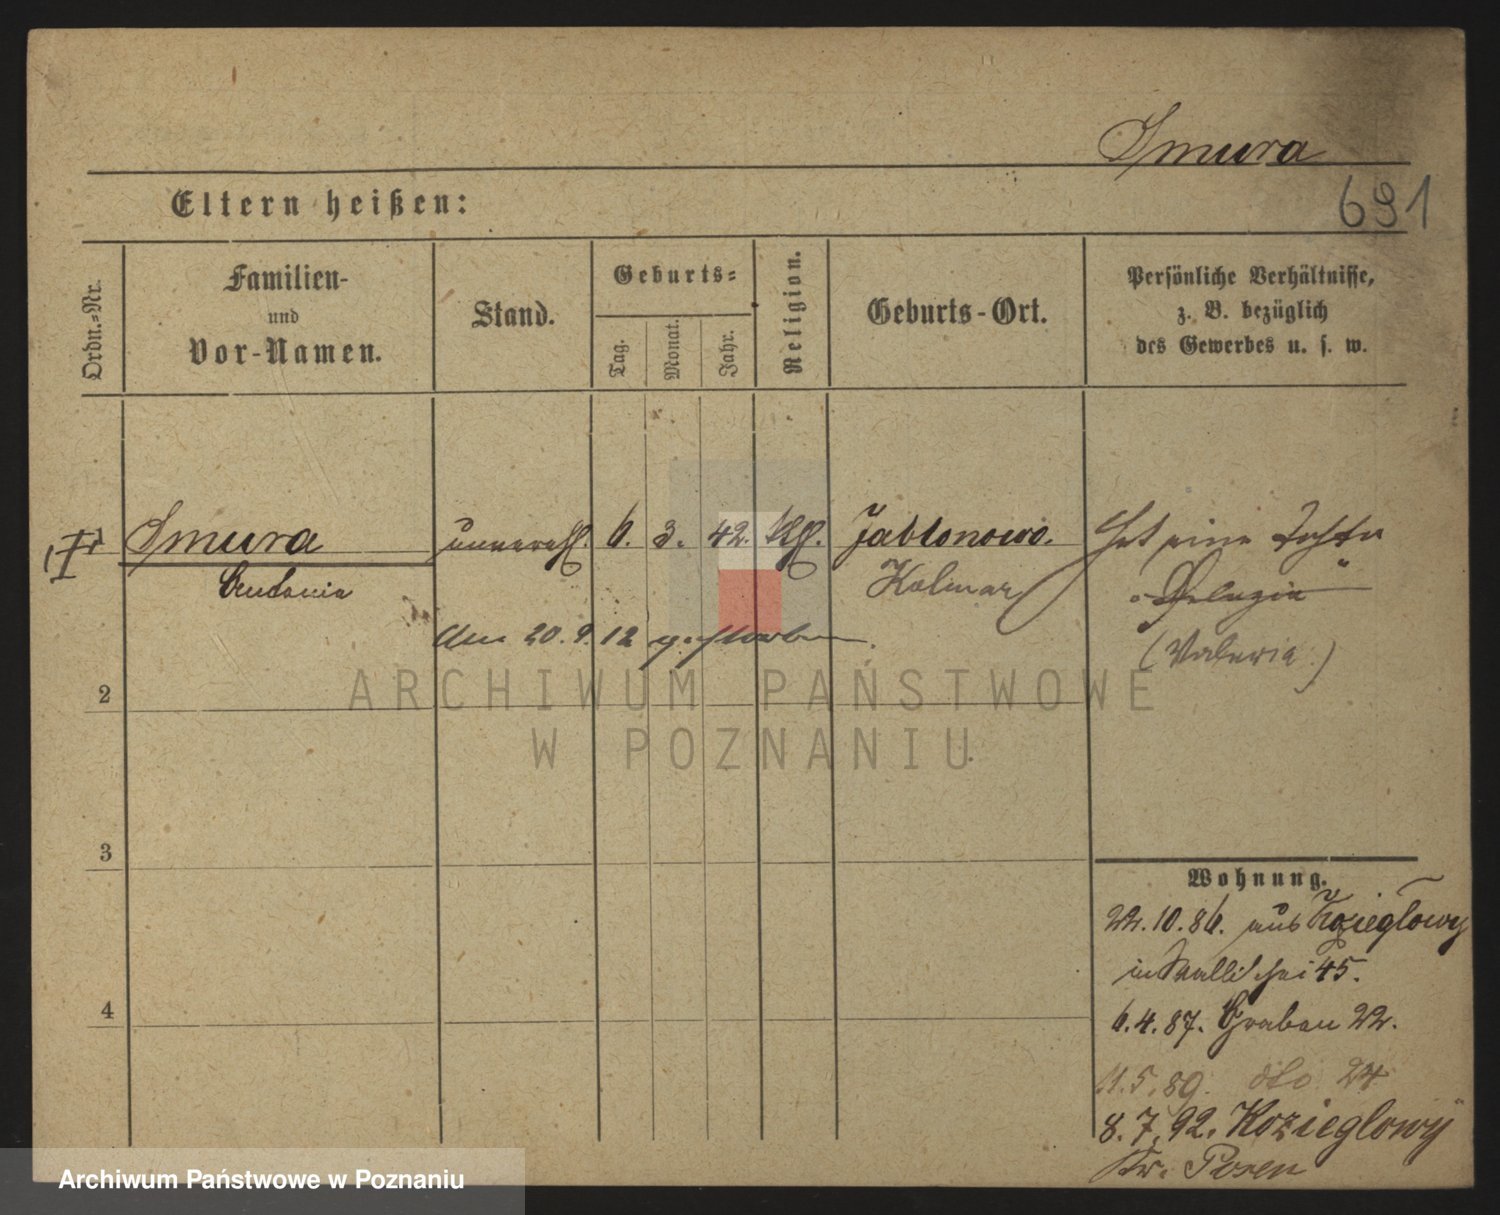 Smura
691
Eltern heißen:
Ordn.-Nr.
Familien-
und
Vor-Namen.
Stand.
Geburts-
Tag.
Monat.
Jahr.
Religion.
Geburts-Ort.
Persönliche Verhältnisse,
z. B. bezüglich
des Gewerbes u. s. w.
Smura unverehl. 6. 3. 42. kth. Jablonowo. Hat eine Tochter
Kolmar "Pelagia"
(Valeria.)
Am 20.9.12 gestorben.
2
3
4
Wohnung.
22.10.86. aus Kozieglowy
in Wallischei 45.
6.4.87. Graben 22.
11.5.89. dto 24
8.7.92. Kozieglowy
Kr. Posen
ARCHIWUM PAŃSTWOWE
W POZNANIU
Archiwum Państwowe w Poznaniu